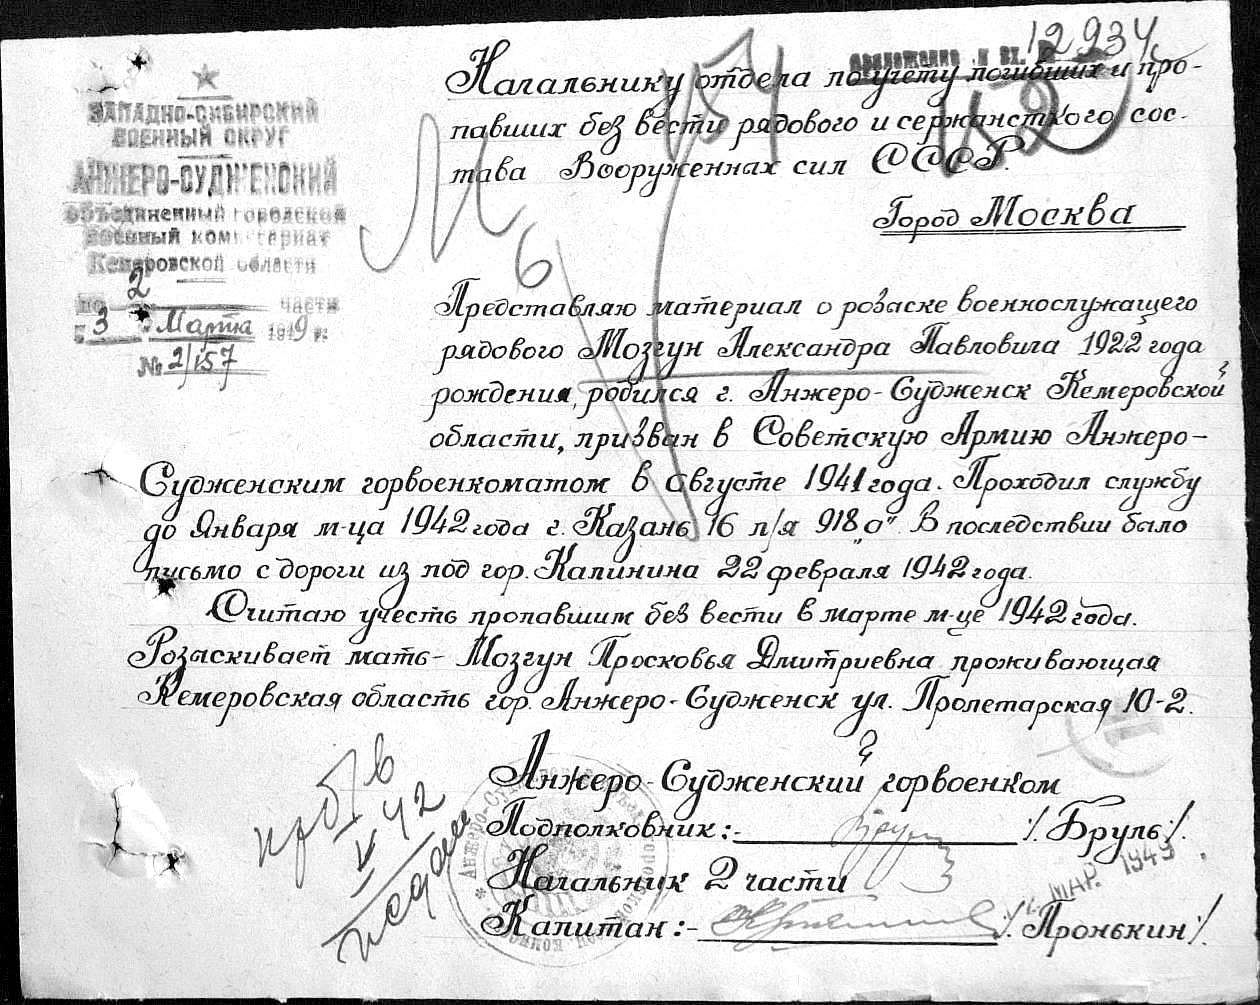 12934
приложение к вх.
Начальнику отдела по учету погибших и про-
павших без вести рядового и сержансткого сос-
тава Вооруженнах сил СССР.
Город Москва
ЗАПАДНО-СИБИРСКИЙ
ВОЕННЫЙ ОКРУГ
АНЖЕРО-СУДЖЕНСКИЙ
объединенный городской
военный комиссариат
Кемеровской области
по 2 части
"3" Марта 1949 г.
№ 2/157
Представляю материал о розаске военнослужащего
рядового Мозгун Александра Павловича 1922 года
рождения, родился г. Анжеро-Судженск Кемеровской
области, призван в Советскую Армию Анжеро-
Судженским горвоенкоматом в августе 1941 года. Проходил службу
до Января м-ца 1942 года г. Казань 16 п/я 918 "а". В последствии было
письмо с дороги из под гор. Калинина 22 февраля 1942 года.
Считаю учесть пропавшим без вести в марте м-це 1942 года.
Розаскивает мать- Мозгун Просковья Дмитриевна проживающая
Кемеровская область гор. Анжеро-Судженск ул. Пролетарская 10-2.
Анжеро-Судженский горвоенком
Подполковник:- /Бруль/.
Начальник 2 части
МАР. 1949
Капитан:- /Пронькин/.